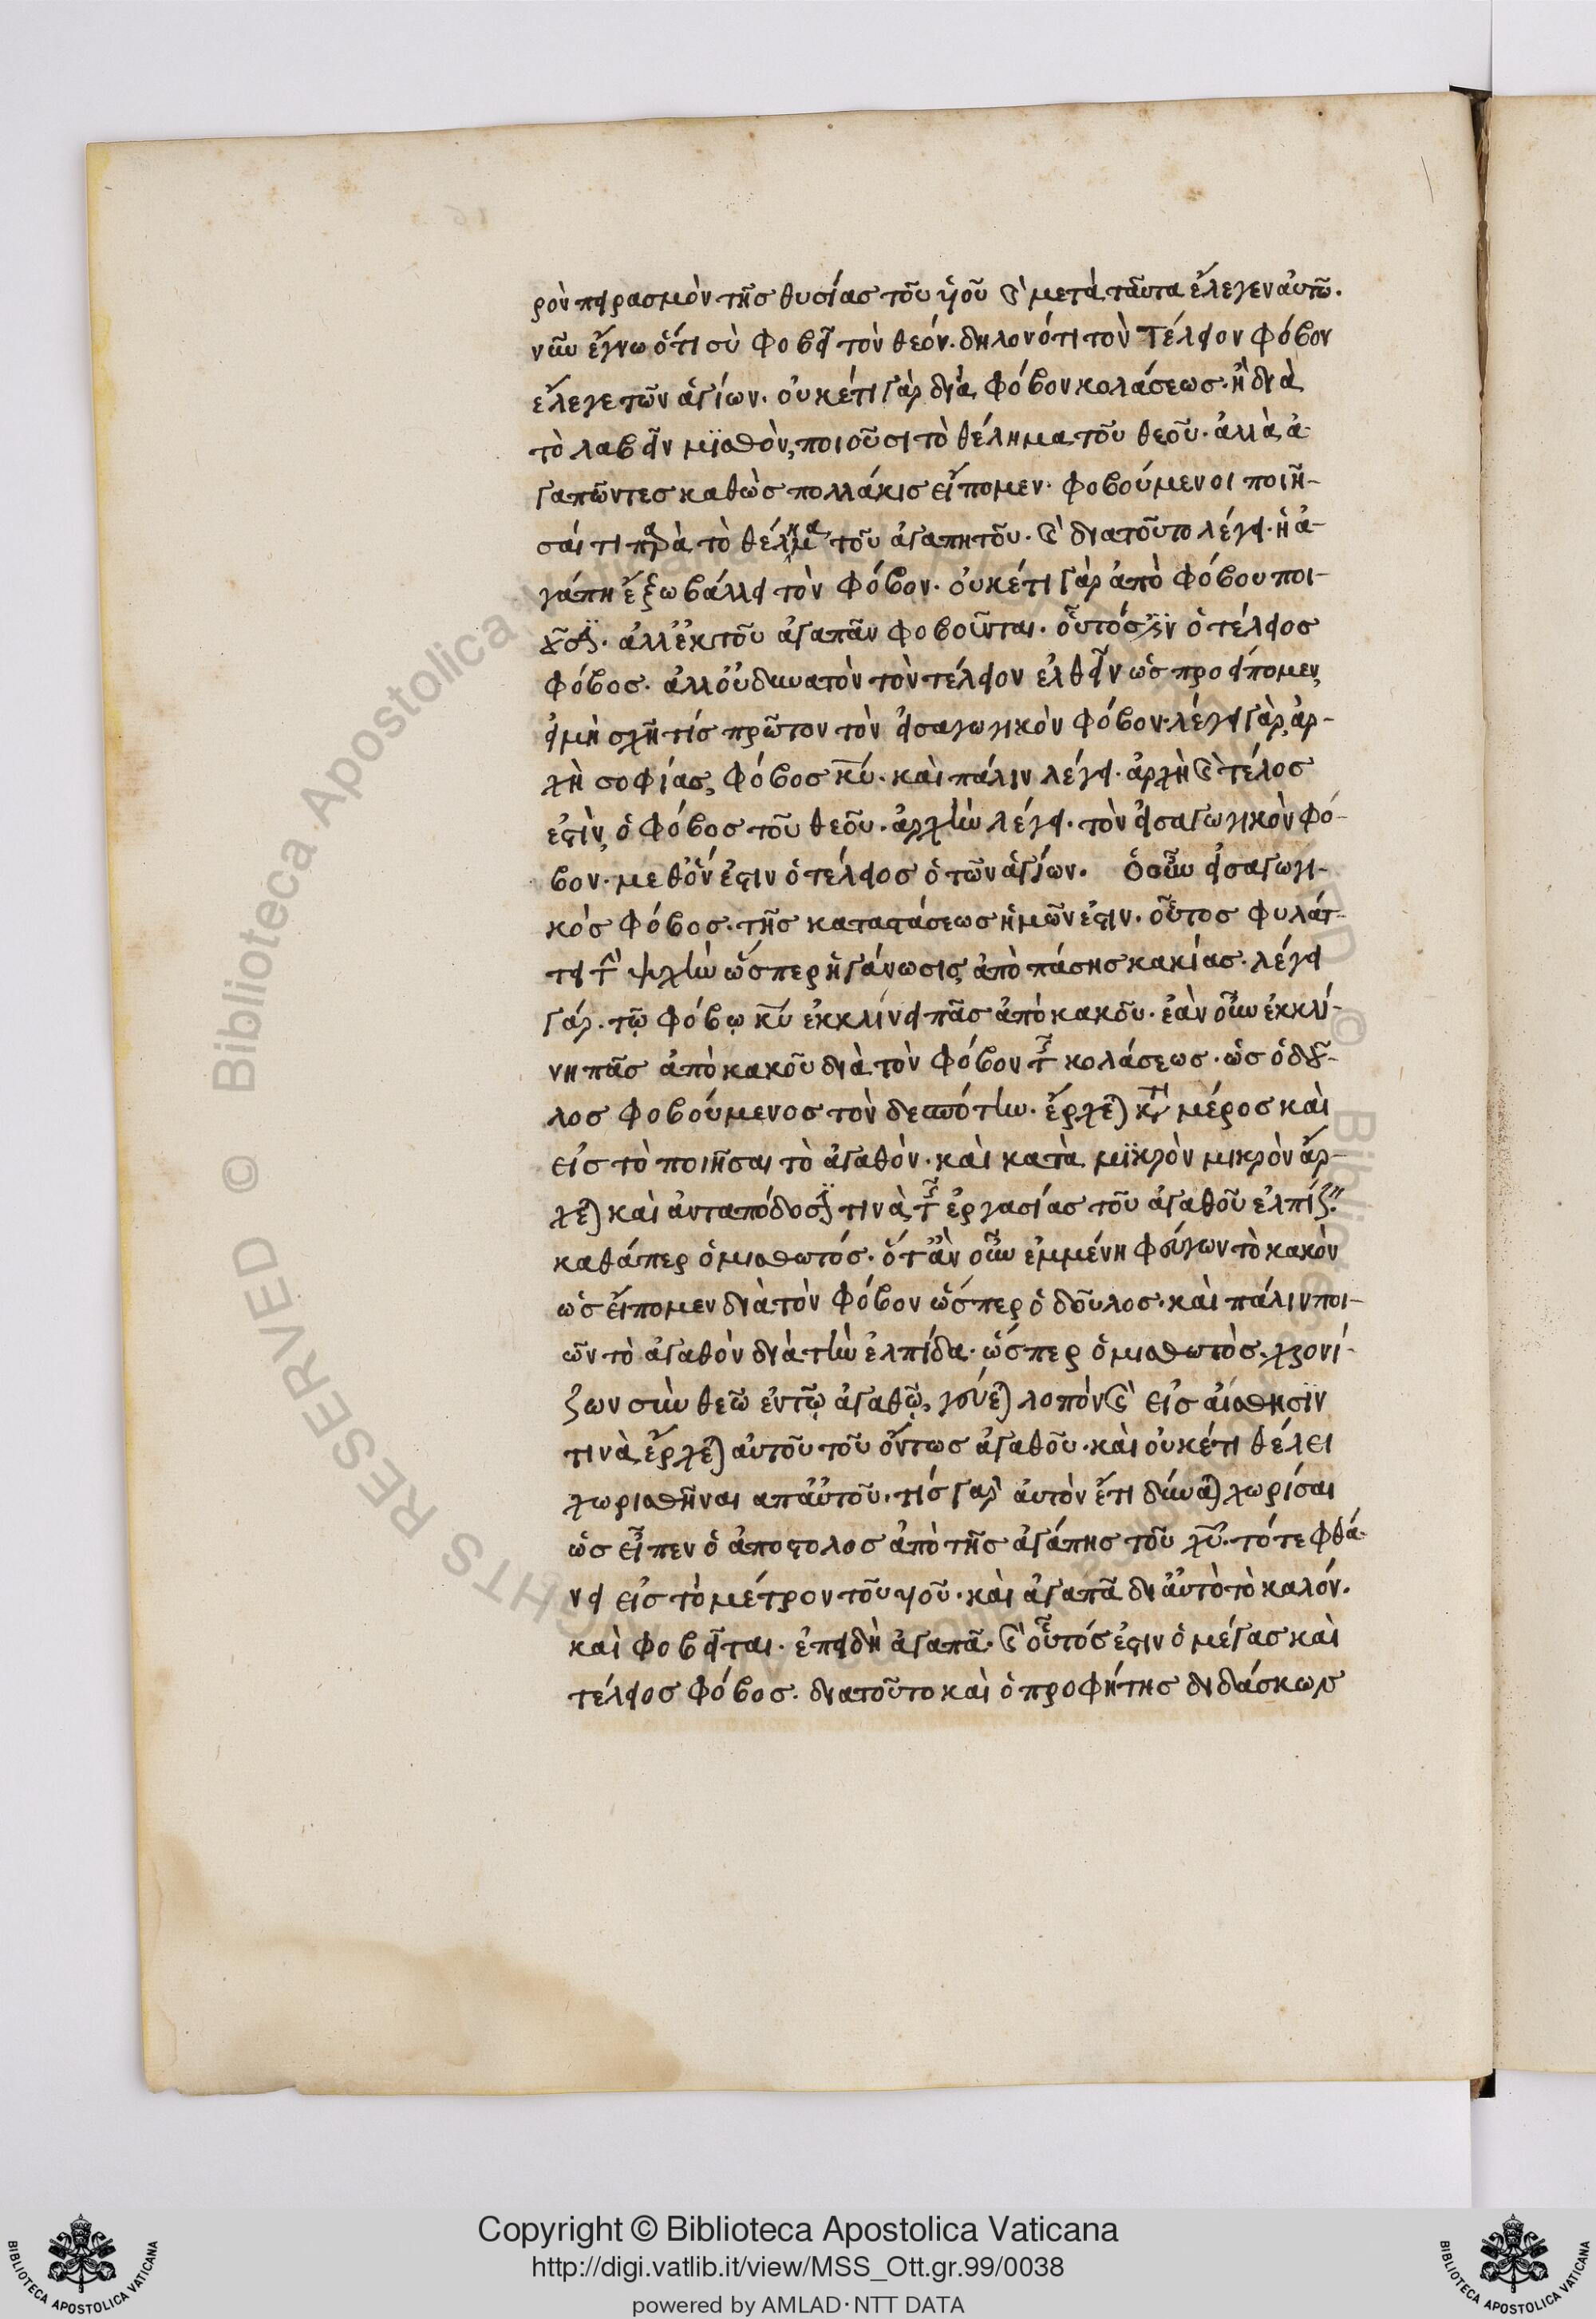 ρὸν πειρασμὸν τῆς θυσίας τοῦ υἱοῦ καὶ μετὰ ταῦτα ἔλεγεν αὐτῶ.
νῦν ἔγνω ὅτι σὺ φοβεῖ τὸν θεόν. δηλονότι τὸν τέλειον φόβον
ἔλεγε τῶν ἁγίων. οὐκέτι γὰρ διὰ φόβον κολάσεως. ἢ διὰ
τὸ λαβεῖν μϊσθὸν, ποιοῦσι τὸ θέλημα τοῦ θεοῦ. ἀλλὰ ἀ-
γαπῶντες καθὼς πολλάκις εἴπομεν. φοβούμενοι ποιῆ-
σαί τι παρὰ τὸ θέλημα τοῦ ἀγαπητοῦ. καὶ διατοῦτο λέγει. ἡ ἀ-
γάπη ἔξω βάλλει τὸν φόβον. οὐκέτι γὰρ ἀπὸ φόβου ποι-
οῦσϊν. ἀλλ' ἐκ τοῦ ἀγαπᾶν φοβοῦνται. οὗτός ἐστϊν ὁ τέλειος
φόβος. ἀλλ' οὐ δυνατὸν τὸν τέλειον ἐλθεῖν ὡς προείπομεν,
εἰ μὴ σχῆ τίς πρῶτον τὸν εἰσαγωγικὸν φόβον. λέγει γὰρ, ἀρ-
χὴ σοφίας, φόβος κ̅υ̅. καὶ πάλιν λέγει. ἀρχὴ καὶ τέλος
ἐστὶν, ὁ φόβος τοῦ θεοῦ. ἀρχὴν λέγει. τὸν εἰσαγωγικὸν φό-
βον. μεθ' ὅν ἐστιν ὁ τέλειος ὁ τῶν ἁγίων. ὁ οὖν εἰσαγωγι-
κός φόβος. τῆς καταστάσεως ἡμῶν ἐστιν. οὗτος φυλάτ-
τει τὴν ψυχὴν ὥσπερ ἡ γάνωσις, ἀπὸ πάσης κακίας. λέγει
γάρ. τῷ φόβῳ κ̅υ̅ ἐκκλίνει πᾶς ἀπὸ κακοῦ. ἐὰν οὖν ἐκκλί-
νη πᾶς ἀπὸ κακοῦ διὰ τὸν φόβον τῆς κολάσεως. ὡς ὁ δοῦ-
λος φοβούμενος τὸν δεσπότην. ἔρχεται κατὰ μέρος καὶ
εἰς τὸ ποιῆσαι τὸ ἀγαθὸν. καὶ κατὰ μϊκρὸν μικρὸν ἄρ-
χεται καὶ ἀνταπόδοσϊν τινὰ, τῆς ἐργασίας τοῦ ἀγαθοῦ ἐλπίζειν
καθάπερ ὁ μισθωτός. ὅτ' ἂν οὖν ἐμμένη φεύγων τὸ κακὸν
ὡς εἴπομεν διὰ τὸν φόβον ὥσπερ ὁ δοῦλος. καὶ πάλιν ποι-
ῶν τὸ ἀγαθὸν διὰ τὴν ἐλπίδα. ὥσπερ ὁ μισθωτὸς. χρονί-
ζων σὺν θεῶ ἐν τῷ ἀγαθῷ, γεύεται λοιπόν καὶ εἰς αἴσθησϊν
τινὰ ἔρχεται αὐτοῦ τοῦ ὄντως ἀγαθοῦ. καὶ οὐκέτι θέλει
χωρισθῆναι ἀπ' αὐτοῦ. τίς γὰρ αὐτὸν ἔτι δύναται χωρίσαι
ὡς εἶπεν ὁ ἀπόστολος ἀπὸ τῆς ἀγάπης τοῦ χ̅υ̅. τότε φθά-
νει εἰς τὸ μέτρον τοῦ υἱοῦ. καὶ ἀγαπᾶ δι' αὐτὸ τὸ καλόν.
καὶ φοβεῖται. ἐπειδὴ ἀγαπᾶ. καὶ οὗτός ἐστιν ὁ μέγας καὶ
τέλειος φόβος. διατοῦτο καὶ ὁ προφήτης διδάσκων
Copyright © Biblioteca Apostolica Vaticana
http://digi.vatlib.it/view/MSS_Ott.gr.99/0038
powered by AMLAD·NTT DATA
BIBLIOTECA APOSTOLICA VATICANA
BIBLIOTECA APOSTOLICA VATICANA